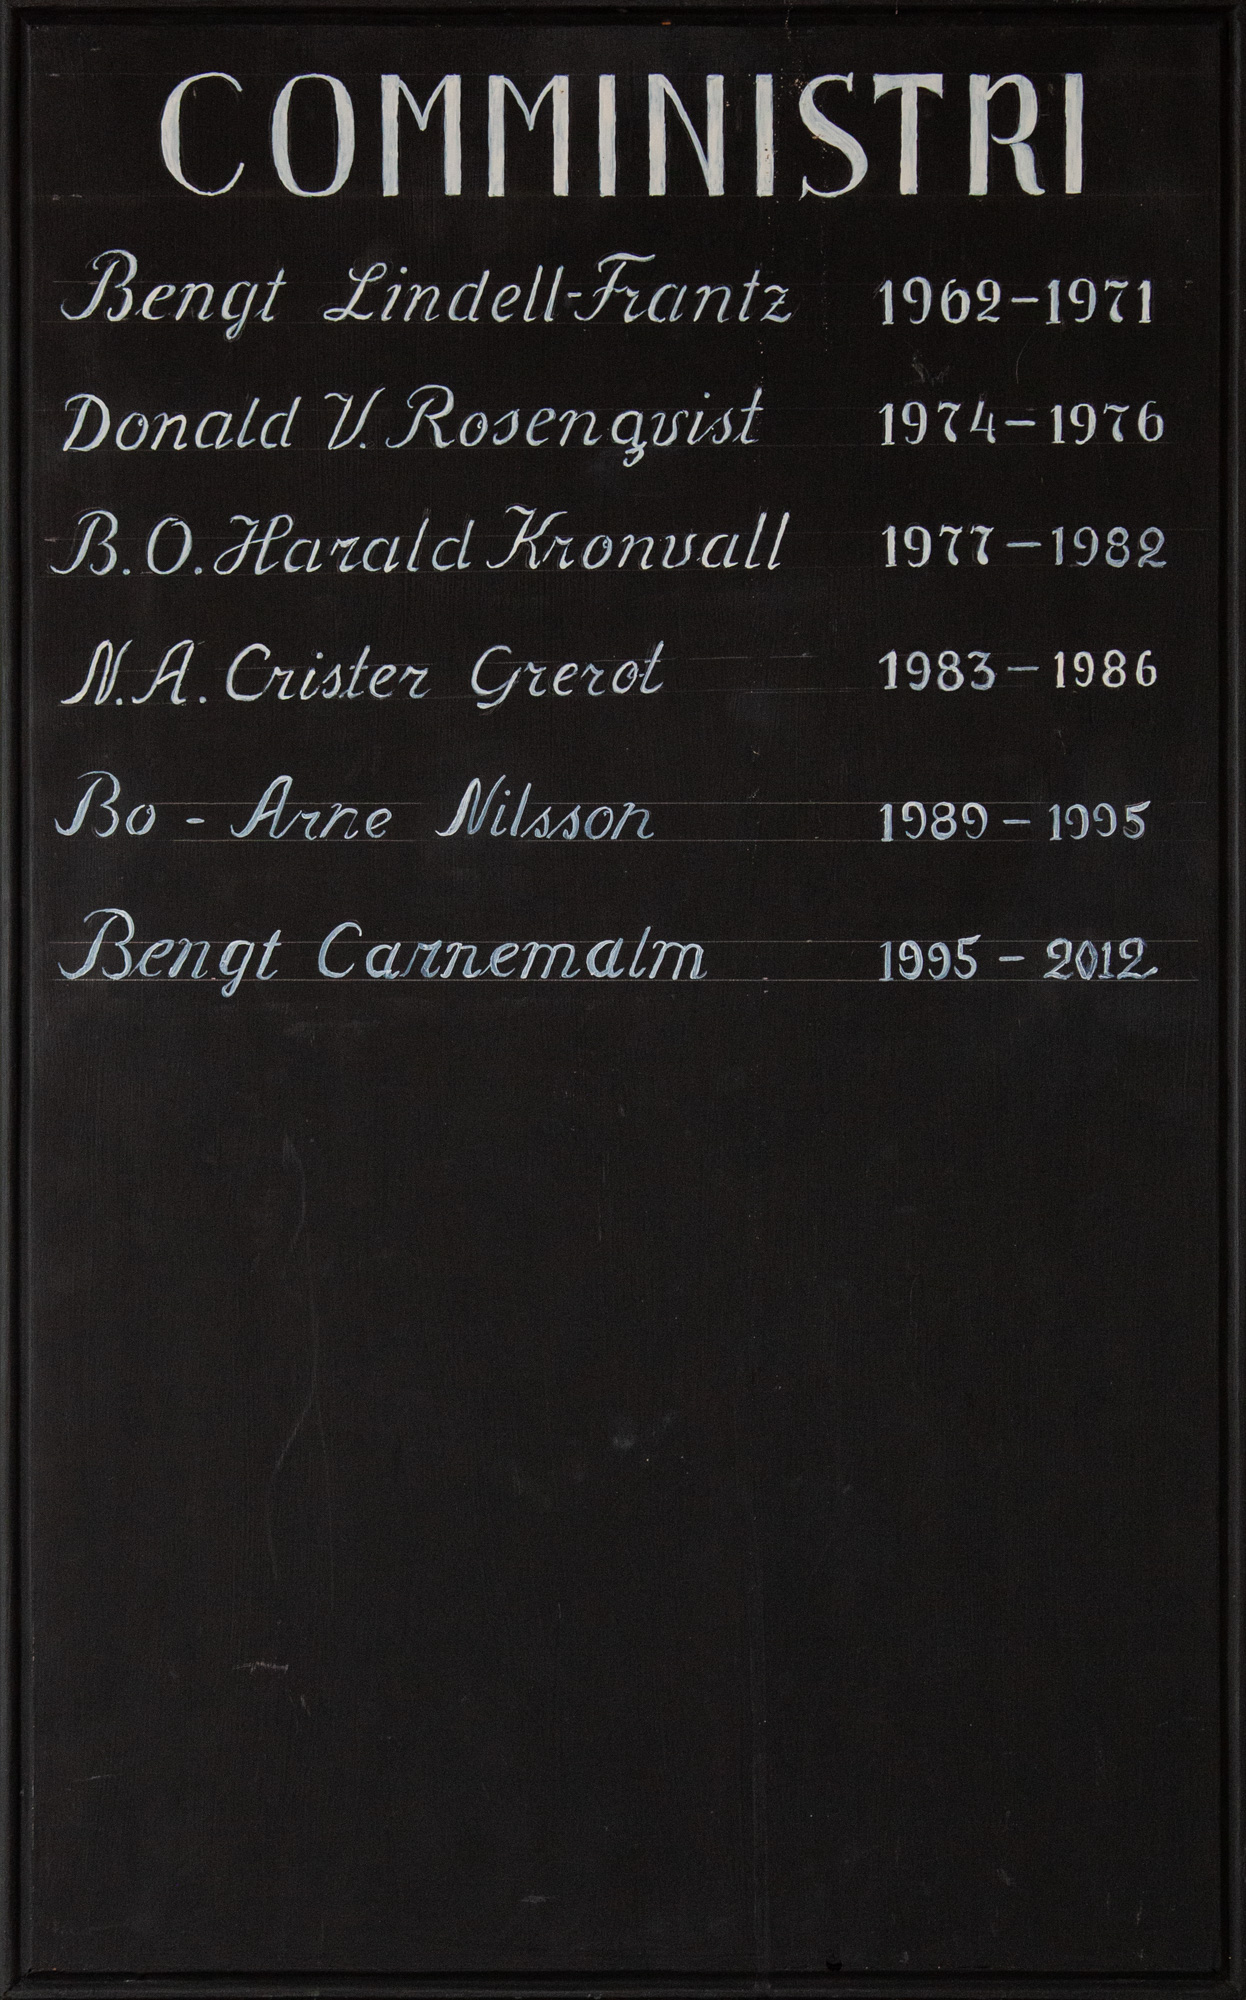 COMMINISTRI
Bengt Lindell-Frantz 1962-1971
Donald V. Rosenqvist 1974-1976
B.O. Harald Kronvall 1977-1982
N.A. Crister Grerot 1983-1986
Bo - Arne Nilsson 1989-1995
Bengt Carnemalm 1995 - 2012